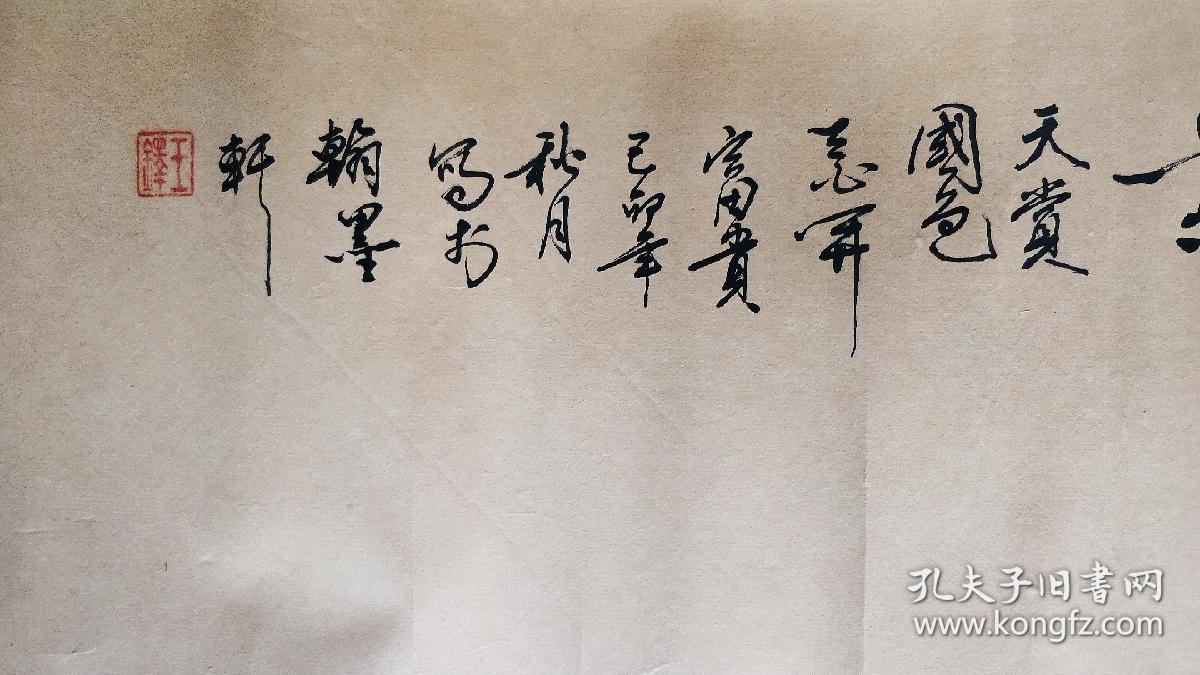 天賞
國色
意算
富貴
己卯年
秋月
寫於
翰墨
軒
王鐸
孔夫子旧書网
www.kongfz.com